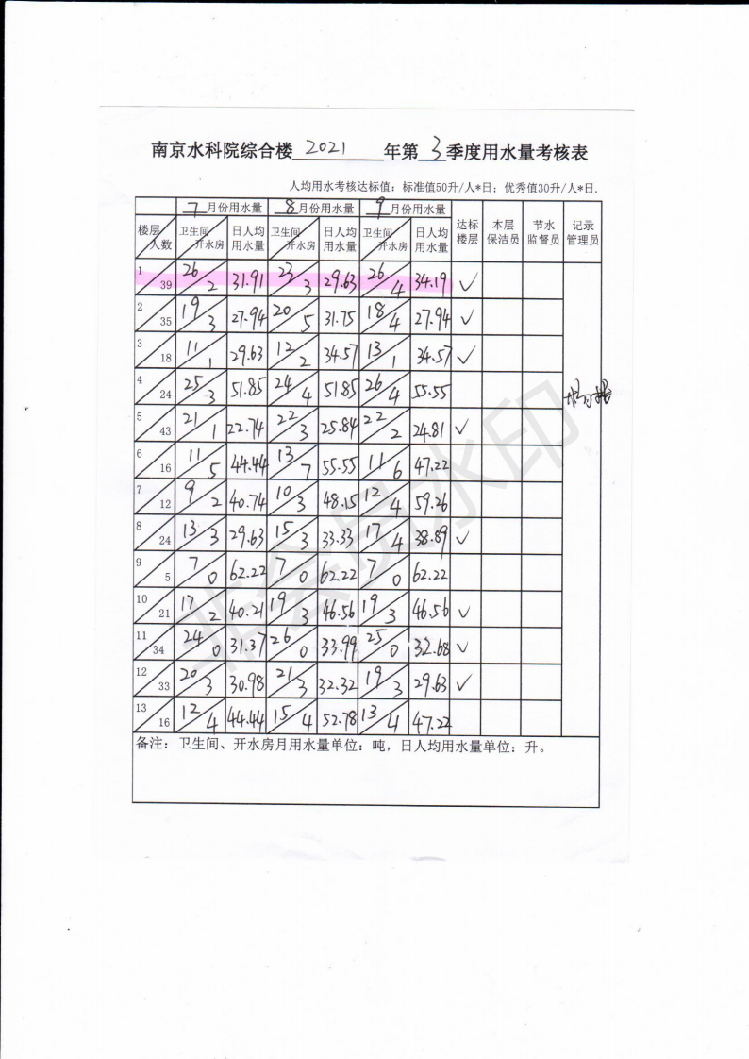 南京水科院综合楼 2021 年第 3 季度用水量考核表
人均用水考核达标值：标准值50升/人*日；优秀值30升/人*日.
7 月份用水量 8 月份用水量 9 月份用水量
楼层 人数 卫生间 开水房 日人均用水量 卫生间 开水房 日人均用水量 卫生间 开水房 日人均用水量 达标楼层 本层保洁员 节水监督员 记录管理员
1 39 26 2 31.91 23 3 29.63 26 4 34.19 ✓
2 35 19 3 27.94 20 5 31.75 18 4 27.94 ✓
3 18 11 1 29.63 12 2 34.57 13 1 34.57 ✓
4 24 25 3 51.85 24 4 51.85 26 4 55.55
5 43 21 1 22.74 22 3 25.84 22 2 24.81 ✓
6 16 11 5 44.44 13 7 55.55 11 6 47.22
7 12 9 2 40.74 10 3 48.15 12 4 59.26
8 24 13 3 29.63 15 3 33.33 17 4 38.89 ✓
9 5 7 0 62.22 7 0 62.22 7 0 62.22
10 21 17 2 40.21 19 3 46.56 19 3 46.56 ✓
11 34 24 0 31.37 26 0 33.99 25 0 32.68 ✓
12 33 20 3 30.98 21 3 32.32 19 3 29.63 ✓
13 16 12 4 44.44 15 4 52.78 13 4 47.22
备注：卫生间、开水房月用水量单位：吨，日人均用水量单位：升。
非会员水印